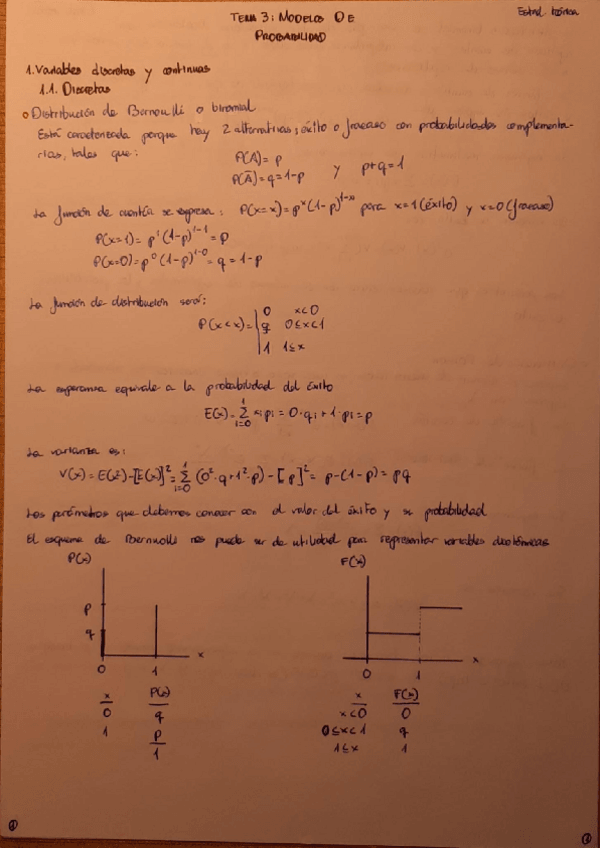 Estad. teórica
TEMA 3: MODELOS DE
PROBABILIDAD
1. Variables discretas y continuas
1.1. Discretas
o Distribución de Bernoulli o binomial
Está caracterizada porque hay 2 alternativas; éxito o fracaso con probabilidades complementa-
rias, tales que:
P(A) = p
P(Ā) = q = 1-p y p+q = 1
La función de cuantía se expresa: P(x=x) = pˣ(1-p)¹⁻ˣ para x=1 (éxito) y x=0 (fracaso)
P(x=1) = p¹ (1-p)¹⁻¹ = p
P(x=0) = p⁰ (1-p)¹⁻⁰ = q = 1-p
La función de distribución será:
P(x<x) = | 0 x<0
q 0≤x<1
1 1≤x
La esperanza equivale a la probabilidad del éxito
E(x) = Σ xᵢpᵢ = 0·qᵢ + 1·pᵢ = p
La varianza es:
V(x) = E(x²)-[E(x)]² = Σ (0²·q+1²·p) - [p]² = p-(1-p) = pq
Los parámetros que debemos conocer son el valor del éxito y su probabilidad
El esquema de Bernoulli nos puede ser de utilidad para representar variables dicotómicas
P(x) F(x)
p
q
x x
0 1 0 1
x P(x) x F(x)
0 q x<0 0
1 p 0≤x<1 q
1 1≤x 1